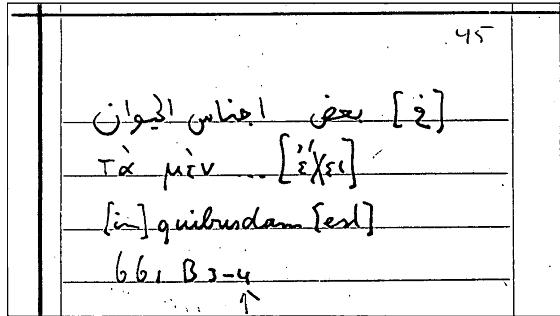 45
[في] بعض اجناس الحيوان
τὰ μὲν ... [ἔχει]
[in] quibusdam [est]
661 B 3-4
↑